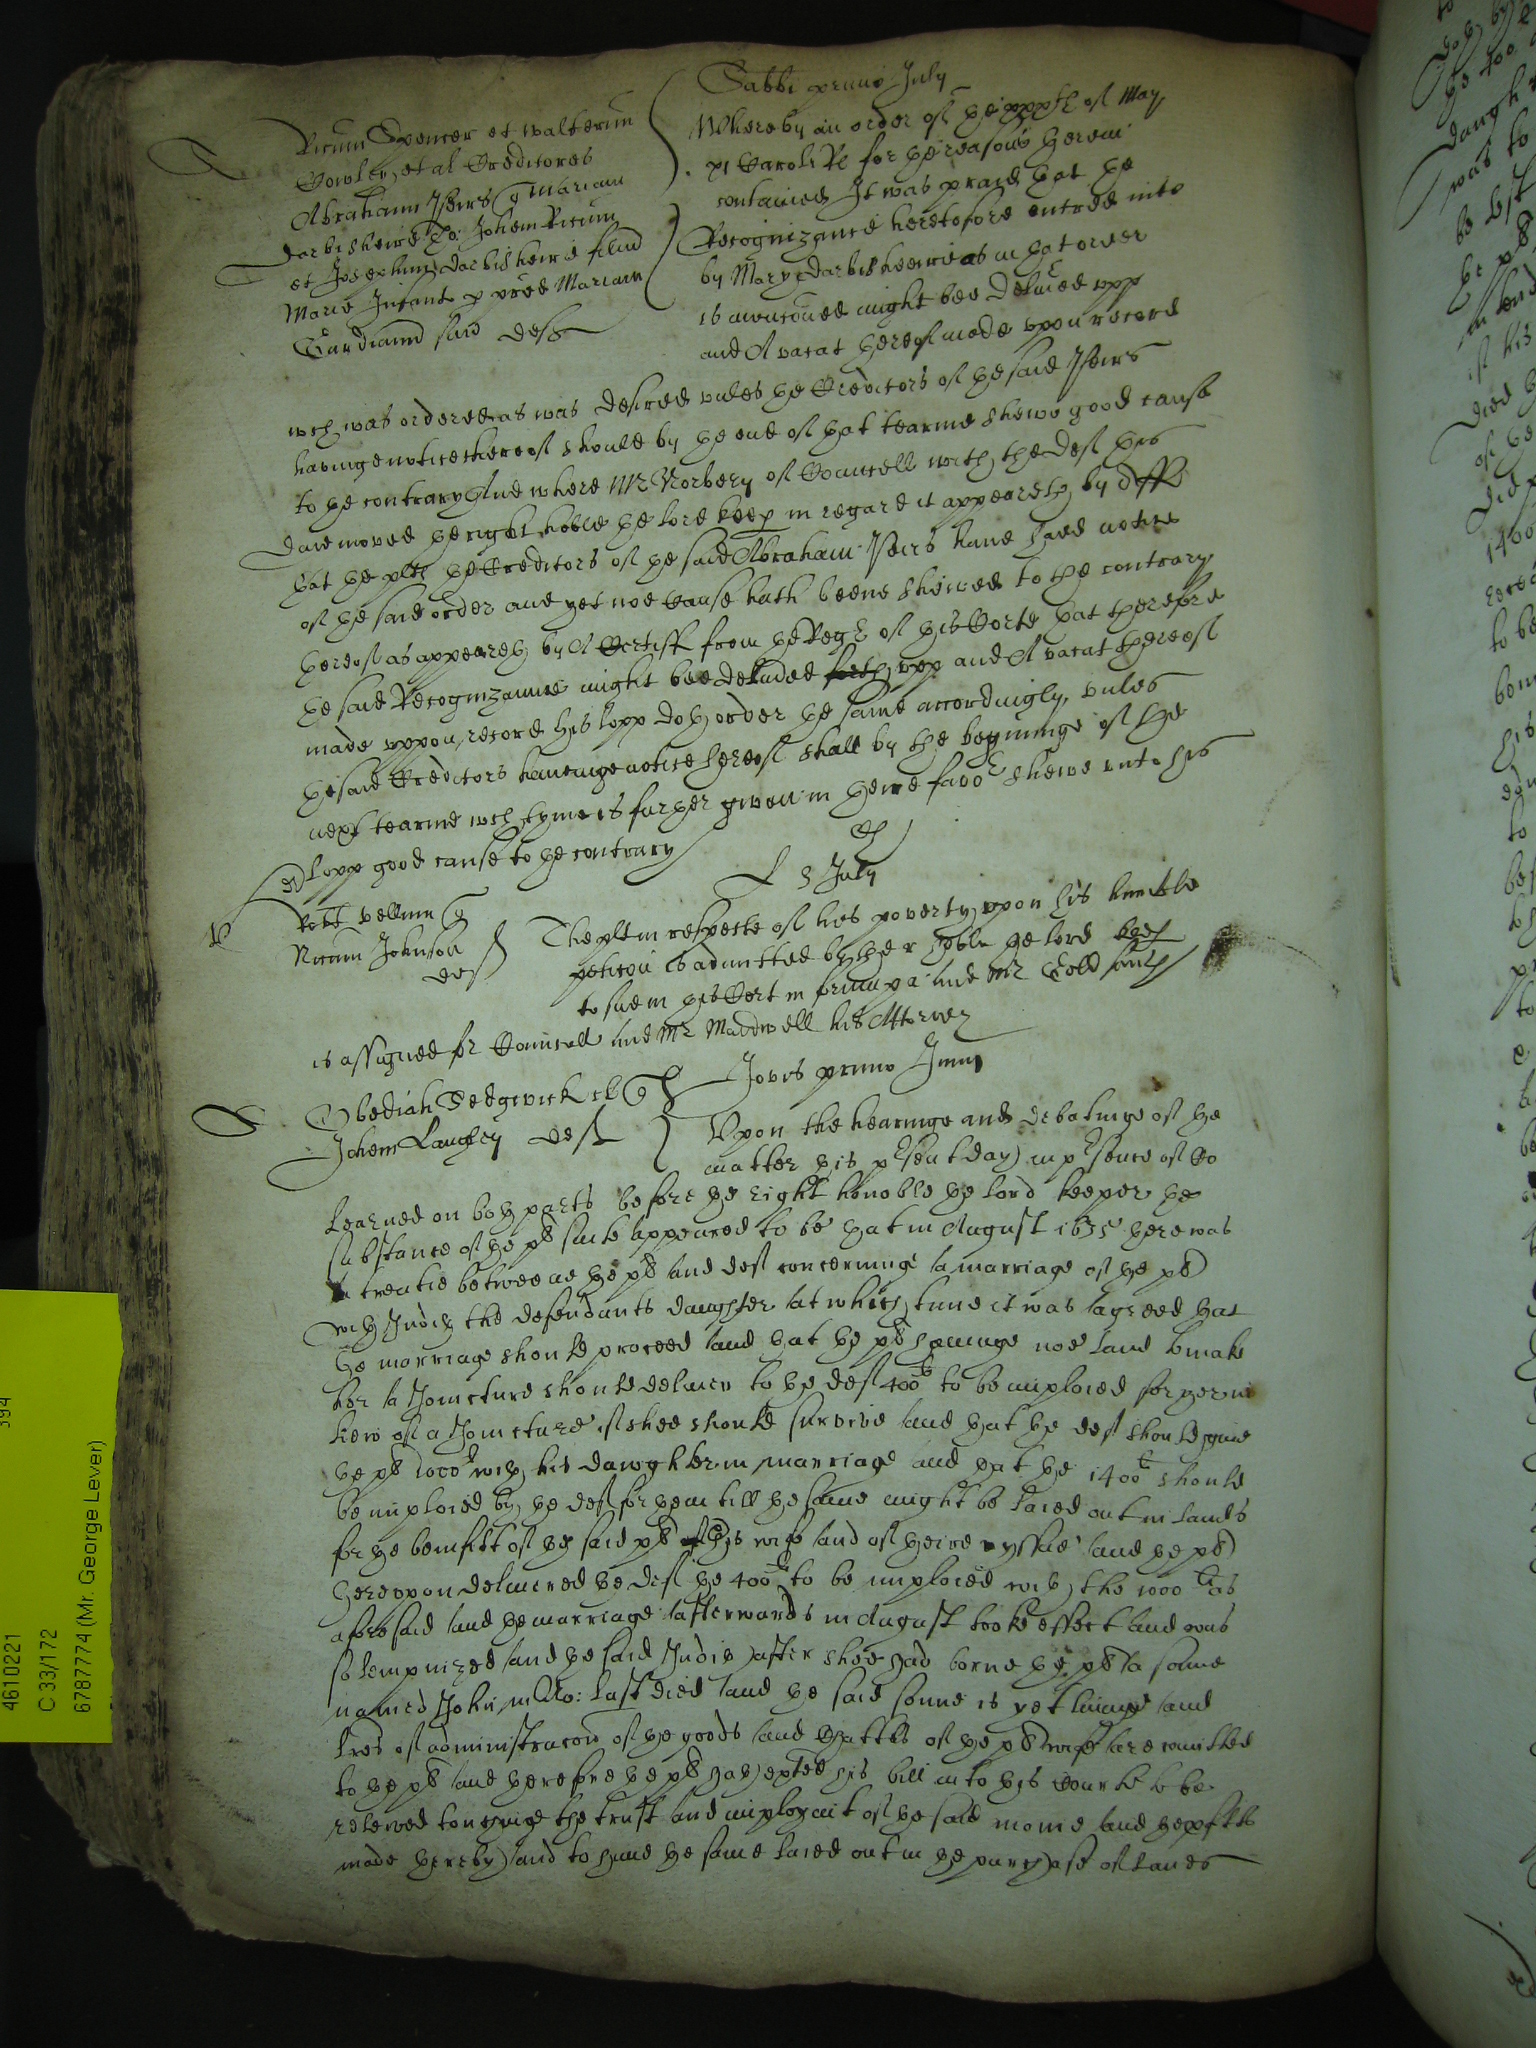 Sabbti primo July
Ricum Spencer et Walterum
Cowley et al Creditores
Abrahami Speirs Mariam
Darbisheire Johem Ricum
et Josephum Darbisheire
Marie Infants p Mariam
Gardianu suu defts
Whereby an order of the xxxth of May
xi Caroli Re for the reasons therein
contained It was praied that the
Recognizance heretofore entred into
by Mary Darbisheire as in that order
is menconed might bee delived upp
and A vacat thereof made upon record
wch was ordered as was desired unles the Creditors of the said Speirs
havinge notice thereof should by the end of that tearme shewe good cause
to the contrary And where Mr Norbery of Councell with the deft this
daie moved the right hoble the lord keep in regard it appeareth by
that the plts the Creditors of the said Abraham Speirs have had notice
of the said order and yet noe Cause hath beene shewed to the contrary
thereof as appeareth by A Certiff from the Regr of this Corte that therefore
the said Recognizance might bee delivded upp and A vacat thereof
made uppon record his lopp doth order the same accordingly, unles
the said Creditors haveinge notice thereof shall by the beginninge of the
next tearme wch tyme is further given in theire favor shewe unto his
lopp good cause to the contrary
3 July
Robt Vellum
Ricum Johnson
deft
The plt in respecte of his poverty upon his humble
peticon is admitted by the r hoble the lord keep
to sue in this Cort in forma pa: and Mr
is assigned for Councell and Mr Maddwell his Attorney
Jovis primo Junii
Obediah Sedgwick cl
Johem Langley deft
Upon the hearinge and debatinge of the
matter this psent day in psence of Co
learned on both parts before the right honoble the lord keeper the
substance of the pls suite appeared to be that in August 1635 there was
a treatie betweene the pl and deft concerning a marriage of the pl
with Judith the defendants daughter at which time it was agreed that
the marriage should proceed and that the pl havinge noe land to make
her a Joincture should deliver to the deft 400li to be imploied for her in
liew of a Joincture if shee should survive and that the deft should give
the pl 1000li with his dawghter in marriage and that the 1400li should
be imploied by the deft for them till the same might be laied out in lands
for the benefitt of the said pl his wife and of theire yssue and the pl
thereupon delivered the deft the 400li to be imploied with the 1000li as
aforesaid and the marriage afterwards in August tooke effect and was
solempnized and the said Judith after shee had borne the pl a sonne
named John in No: last died and the said sonne is yet livinge and
lres of administracon of the goods and Chattles of the pls wife are comitted
to the pl and therefore the pl hath exhted his bill into this Courte to be
releived touchinge the trust and imploymt of the said monie and the pfitts
made thereby and to have the same laied out in the purchase of landes
4610221
C 33/172
6787774 (Mr. George Lever)
394